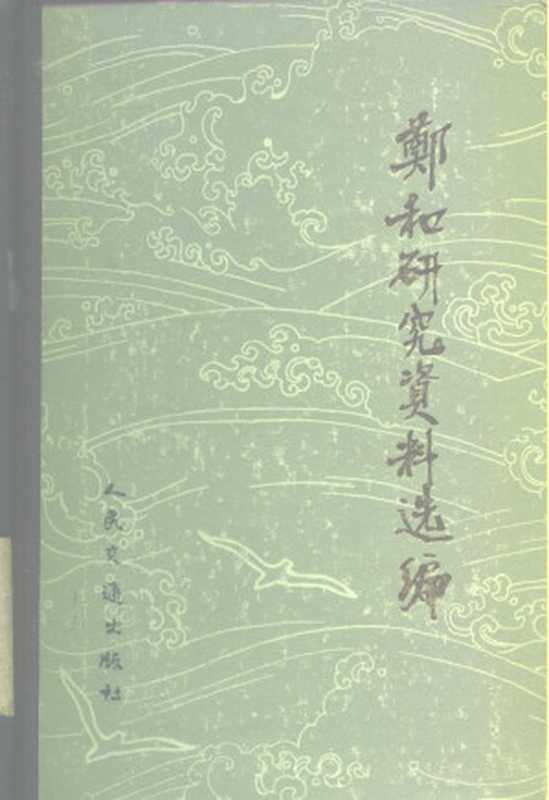 鄭和研究資料选编
人民交通出版社